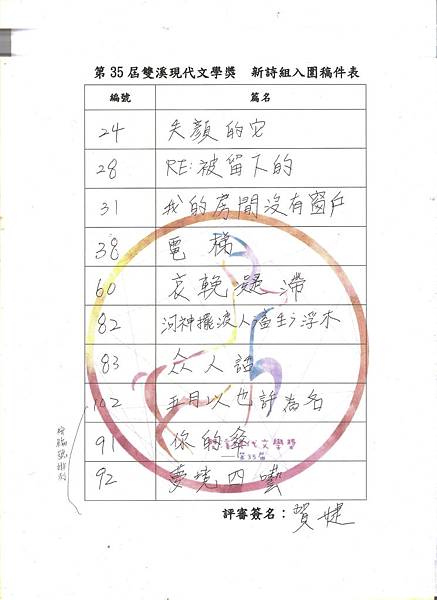 第35屆雙溪現代文學獎 新詩組入圍稿件表
編號 篇名
24 失顏的它
28 RE:被留下的
31 我的房間沒有窗戶
38 電梯
60 哀輓凝滯
82 河神擺渡人,畜生,浮木
83 众人話
102 五月以也許為名
91 你的傘
92 夢境四囈
按編號排列
代文學獎
第35屆
評審簽名:賀婕